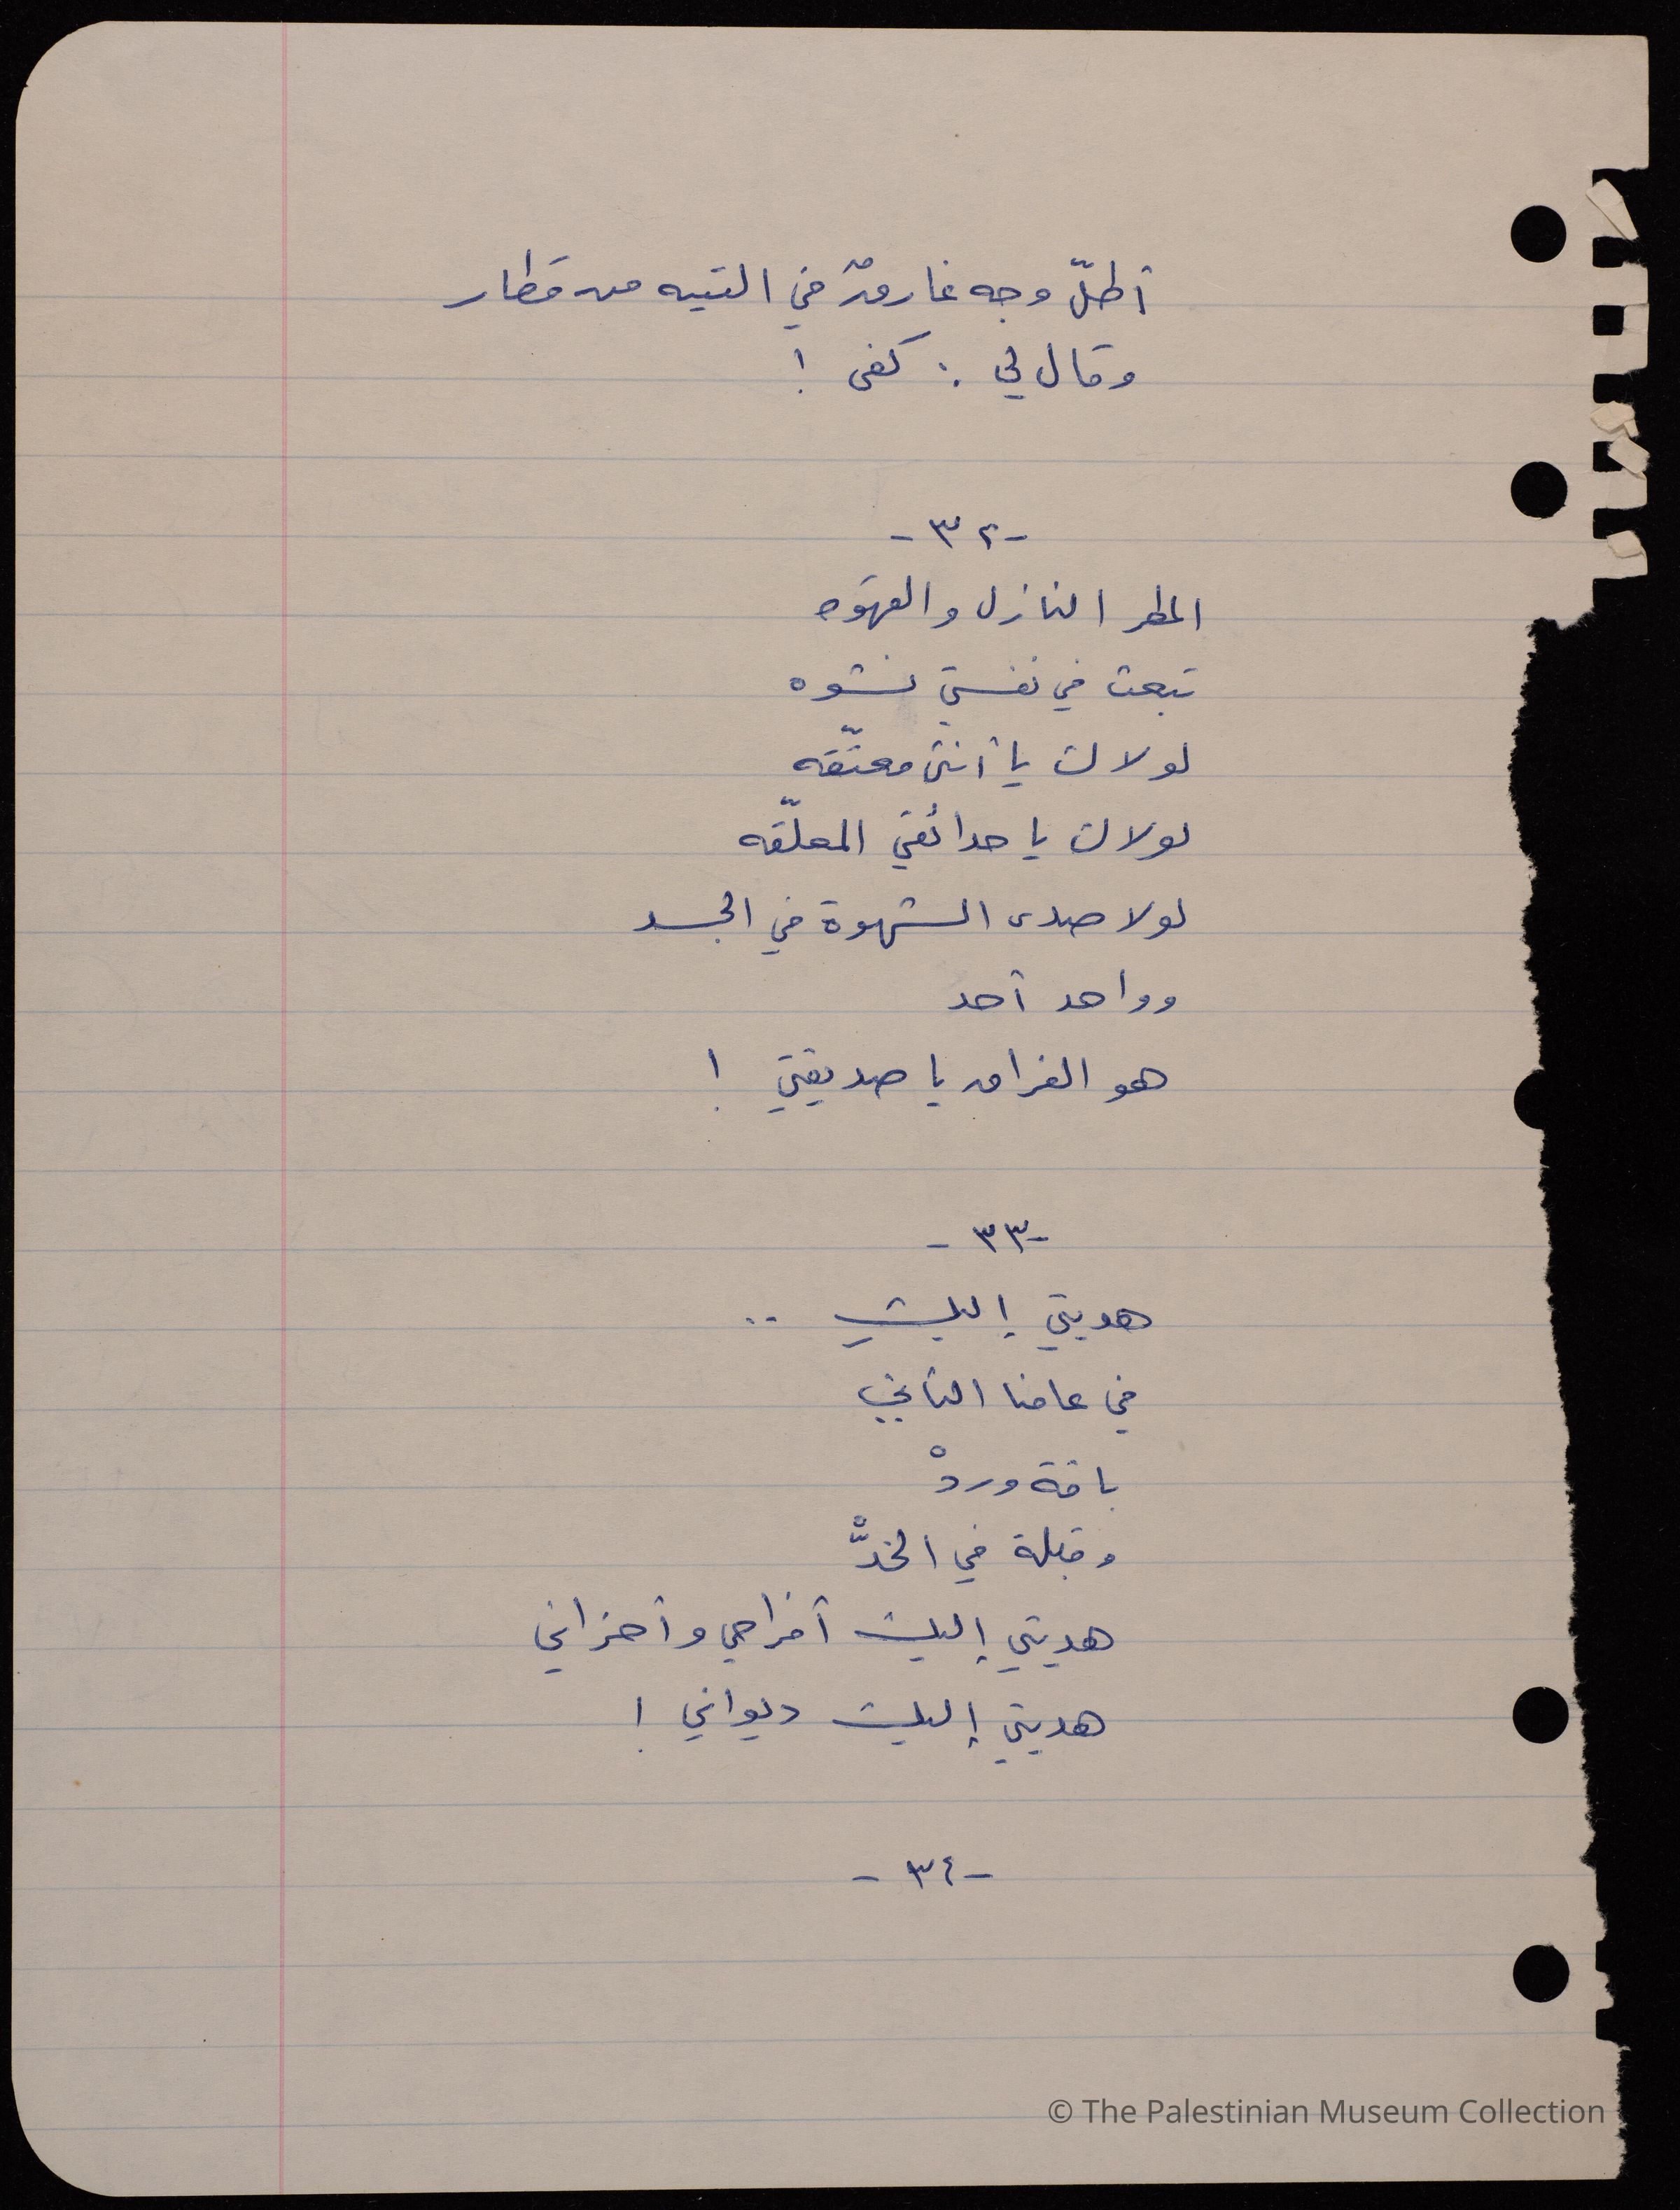 أطلّ وجه غارقٌ في التيه من قطار
وقال لي : كفى !
-٣٢-
المطر النازل والقهوه
تبعث في نفسي نشوه
لولاك يا أنثى معتّقه
لولاك يا حدائقي المعلّقه
لولا صدى الشهوة في الجسد
وواحد أحد
هو الفراق يا صديقتي !
-٣٣-
هديتي إليكِ ..
في عامنا الثاني
باقة وردْ
وقبلة في الخدّْ
هديتي إليك أفراحي وأحزاني
هديتي إليك ديواني !
-٣٤-
© The Palestinian Museum Collection